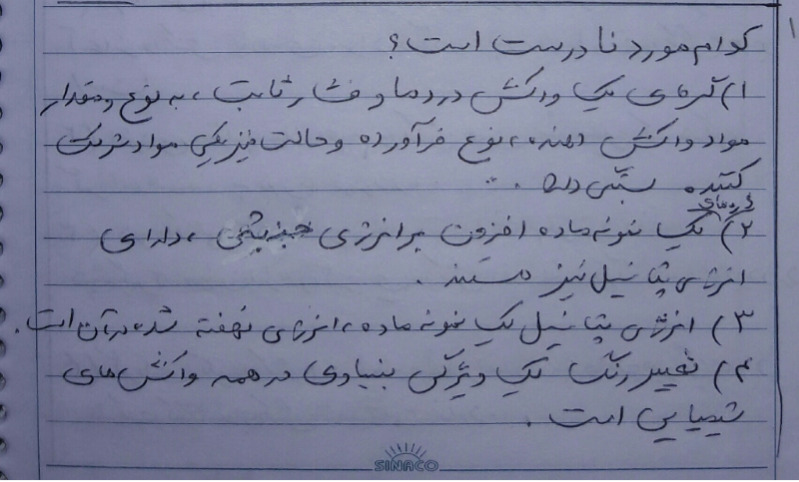 ۱
کدام مورد نادرست است؟
۱) گرمای یک واکنش در دما و فشار ثابت، به نوع و مقدار
مواد واکنش دهنده، نوع فرآورده و حالت فیزیکی مواد شرکت
کننده بستگی دارد.
ذره‌های
۲) یک نمونه ماده افزون بر انرژی جنبشی، دارای
انرژی پتانسیل نیز هستند.
۳) انرژی پتانسیل یک نمونه ماده، انرژی نهفته شده در آن است.
۴) تغییر رنگ یک ویژگی بنیادی در همه واکنش‌های
شیمیایی است.
SINACO